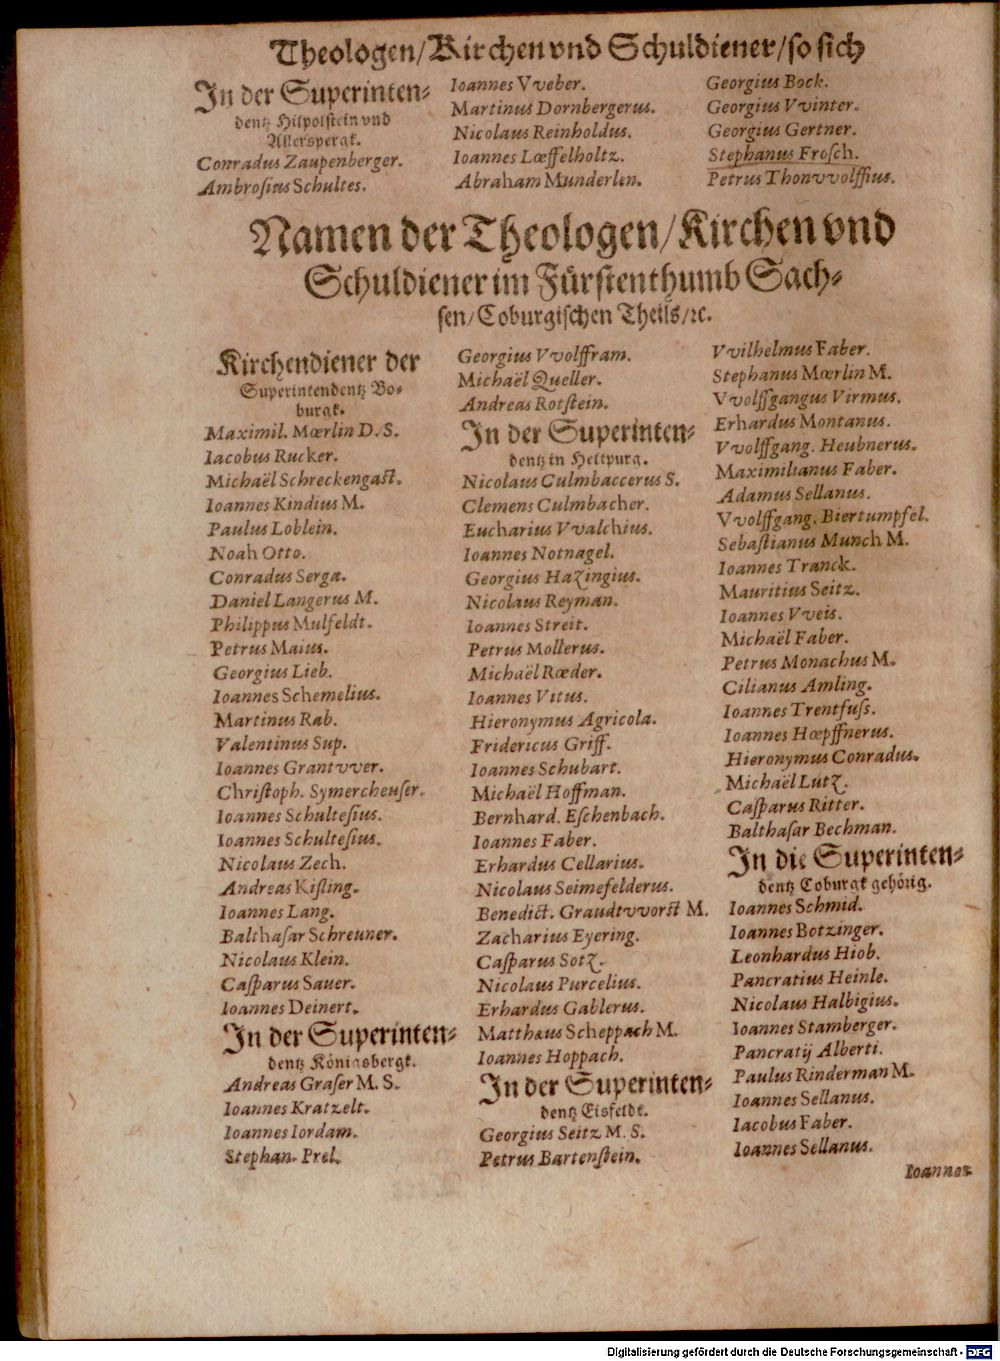 Theologen/Kirchen vnd Schuldiener/so sich
In der Superinten-
dentz Hilpolstein vnd
Allerspergk.
Conradus Zaupenberger.
Ambrosius Schultes.
Ioannes Vveber.
Martinus Dornbergerus.
Nicolaus Reinholdus.
Ioannes Lœffelholtz.
Abraham Munderlen.
Georgius Bock.
Georgius Vvinter.
Georgius Gertner.
Stephanus Frosch.
Petrus Thonvvolffius.
Namen der Theologen/Kirchen vnd
Schuldiener im Fürstenthumb Sach-
sen/Coburgischen Theils/ꝛc.
Kirchendiener der
Superintendentz Bo-
burgk.
Maximil. Mœrlin D. S.
Iacobus Rucker.
Michaël Schreckengast.
Ioannes Kindius M.
Paulus Loblein.
Noah Otto.
Conradus Sergæ.
Daniel Langerus M.
Philippus Mulfeldt.
Petrus Maius.
Georgius Lieb.
Ioannes Schemelius.
Martinus Rab.
Valentinus Sup.
Ioannes Grantvver.
Christoph. Symercheuser.
Ioannes Schultesius.
Ioannes Schultesius.
Nicolaus Zech.
Andreas Kisling.
Ioannes Lang.
Balthasar Schreuner.
Nicolaus Klein.
Casparus Sauer.
Ioannes Deinert.
In der Superinten-
dentz Königsbergk.
Andreas Graser M. S.
Ioannes Kratzelt.
Ioannes Iordam.
Stephan. Prel.
Georgius Vvolffram.
Michaël Queller.
Andreas Rotstein.
In der Superinten-
dentz in Heltpurg.
Nicolaus Culmbaccerus S.
Clemens Culmbacher.
Eucharius Vvalchius.
Ioannes Notnagel.
Georgius Hazingius.
Nicolaus Reyman.
Ioannes Streit.
Petrus Mollerus.
Michaël Rœder.
Ioannes Vitus.
Hieronymus Agricola.
Fridericus Griff.
Ioannes Schubart.
Michaël Hoffman.
Bernhard. Eschenbach.
Ioannes Faber.
Erhardus Cellarius.
Nicolaus Seimefelderus.
Benedict. Graudtvvorst M.
Zacharius Eyering.
Casparus Sotz.
Nicolaus Purcelius.
Erhardus Gablerus.
Matthæus Scheppach M.
Ioannes Hoppach.
In der Superinten-
dentz Eisfeldt.
Georgius Seitz M. S.
Petrus Bartenstein.
Vvilhelmus Faber.
Stephanus Mœrlin M.
Vvolffgangus Virmus.
Erhardus Montanus.
Vvolffgang. Heubnerus.
Maximilianus Faber.
Adamus Sellanus.
Vvolffgang. Biertumpfel.
Sebastianus Munch M.
Ioannes Tranck.
Mauritius Seitz.
Ioannes Vveis.
Michaël Faber.
Petrus Monachus M.
Cilianus Amling.
Ioannes Trentfuss.
Ioannes Hœpffnerus.
Hieronymus Conradus.
Michaël Lutz.
Casparus Ritter.
Balthasar Bechman.
In die Superinten-
dentz Coburgk gehörig.
Ioannes Schmid.
Ioannes Botzinger.
Leonhardus Hiob.
Pancratius Heinle.
Nicolaus Halbigius.
Ioannes Stamberger.
Pancratij Alberti.
Paulus Rinderman M.
Ioannes Sellanus.
Iacobus Faber.
Ioannes Sellanus.
Ioannes
Digitalisierung gefördert durch die Deutsche Forschungsgemeinschaft - DFG